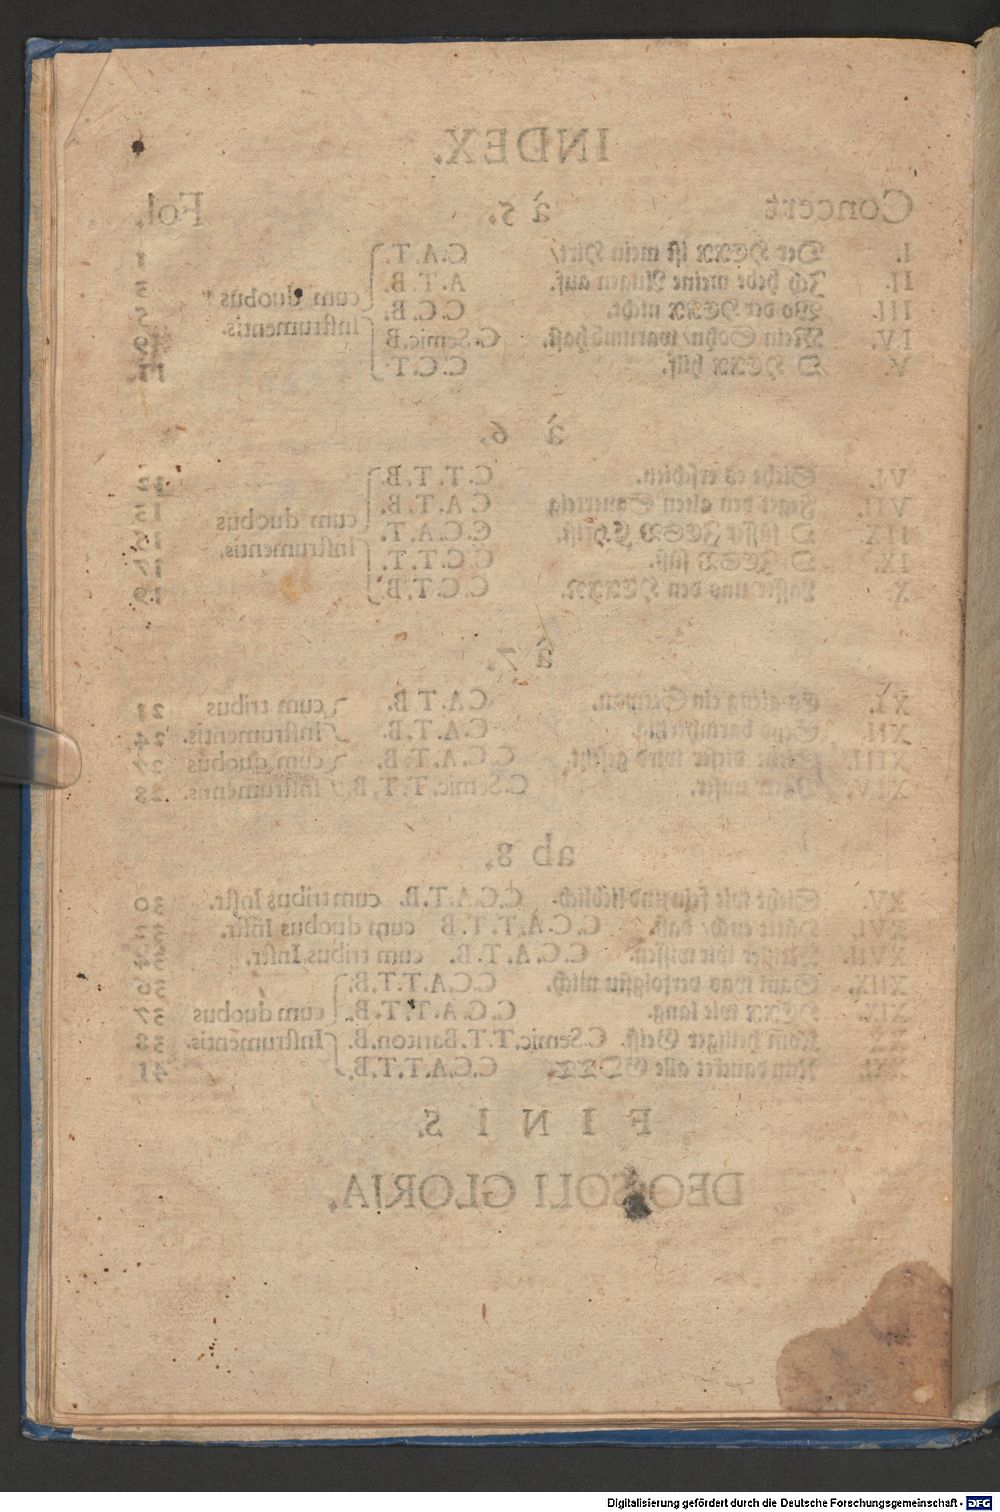 INDEX.
Concert à 5. Fol.
I. Der HERR ist mein Hirt/ C.A.T.
II. Ich hebe meine Augen auf. A.T.B. 3
cum duobus
III. Wo der HERR nicht. C.C.B. 5
Instrumentis.
IV. Mein Sohn/ warumb hast. C. Semic. B 9
V. O HERR hilf. C.C.T 11.
à 6.
VI. Siehe es erschien. C.T.T.B. 12
VII. Feget den alten Sauerteig C A.T.B. 13
cum duobus
IIX. O süsser JESU CHrist. C.C.A.T. 15
Instrumentis.
IX. O JESU süß. C.C.T.T. 17
X. Lasset uns den HERREN. C.C.T.B. 19
à 7.
XI. Es gieng ein Seeman. C.A.T.B. cum tribus 21
XII. Seyd barmhertzig. C.A.T.B. Instrumentis. 24
XIII. dieser wird gesetzt. C.C.A.T.B. cum duobus 27
XIV. Vater unser. C. Semic. T.T.B. Instrumentis. 28
ab 8.
XV. Siehe wie fein und lieblich. C.C.A.T.B. cum tribus Instr. 30
XVI. Hütet euch/ daß. C.C.A.T.T.B cum duobus Instr.
XVII. Meister wir wissen. C.C.A.T.B. cum tribus Instr. 34
XIIX. Saul was verfolgstu mich. C.C.A.T.T.B. 36
XIX. HERR wie lang. C.C.A.T.T.B. cum duobus 37
XX. Kom heiliger Geist. C. Semic. T.T. Bariton. B. Instrumentis. 38
XXI. Nun dancket alle GOTT C.C.A.T.T.B. 41
FINIS.
DEO SOLI GLORIA.
Digitalisierung gefördert durch die Deutsche Forschungsgemeinschaft - DFG